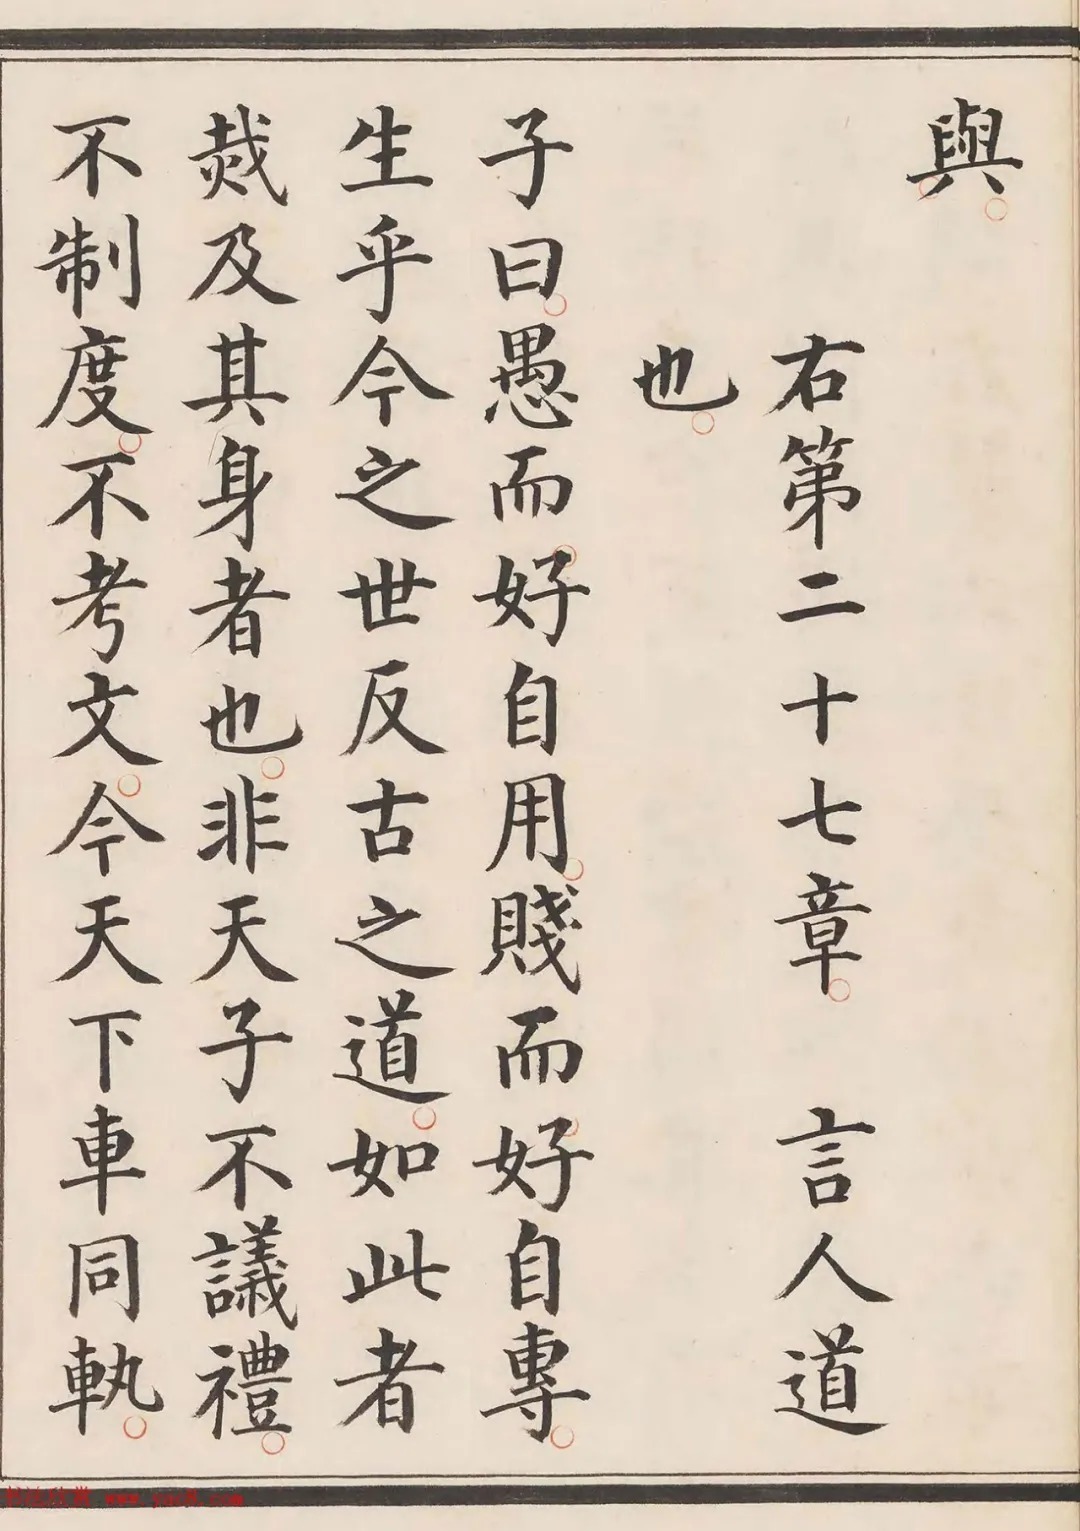 與。
右第二十七章。 言人道
也。
子曰。愚而好自用。賤而好自專。
生乎今之世反古之道。如此者
烖及其身者也。非天子不議禮。
不制度。不考文。今天下車同軌。